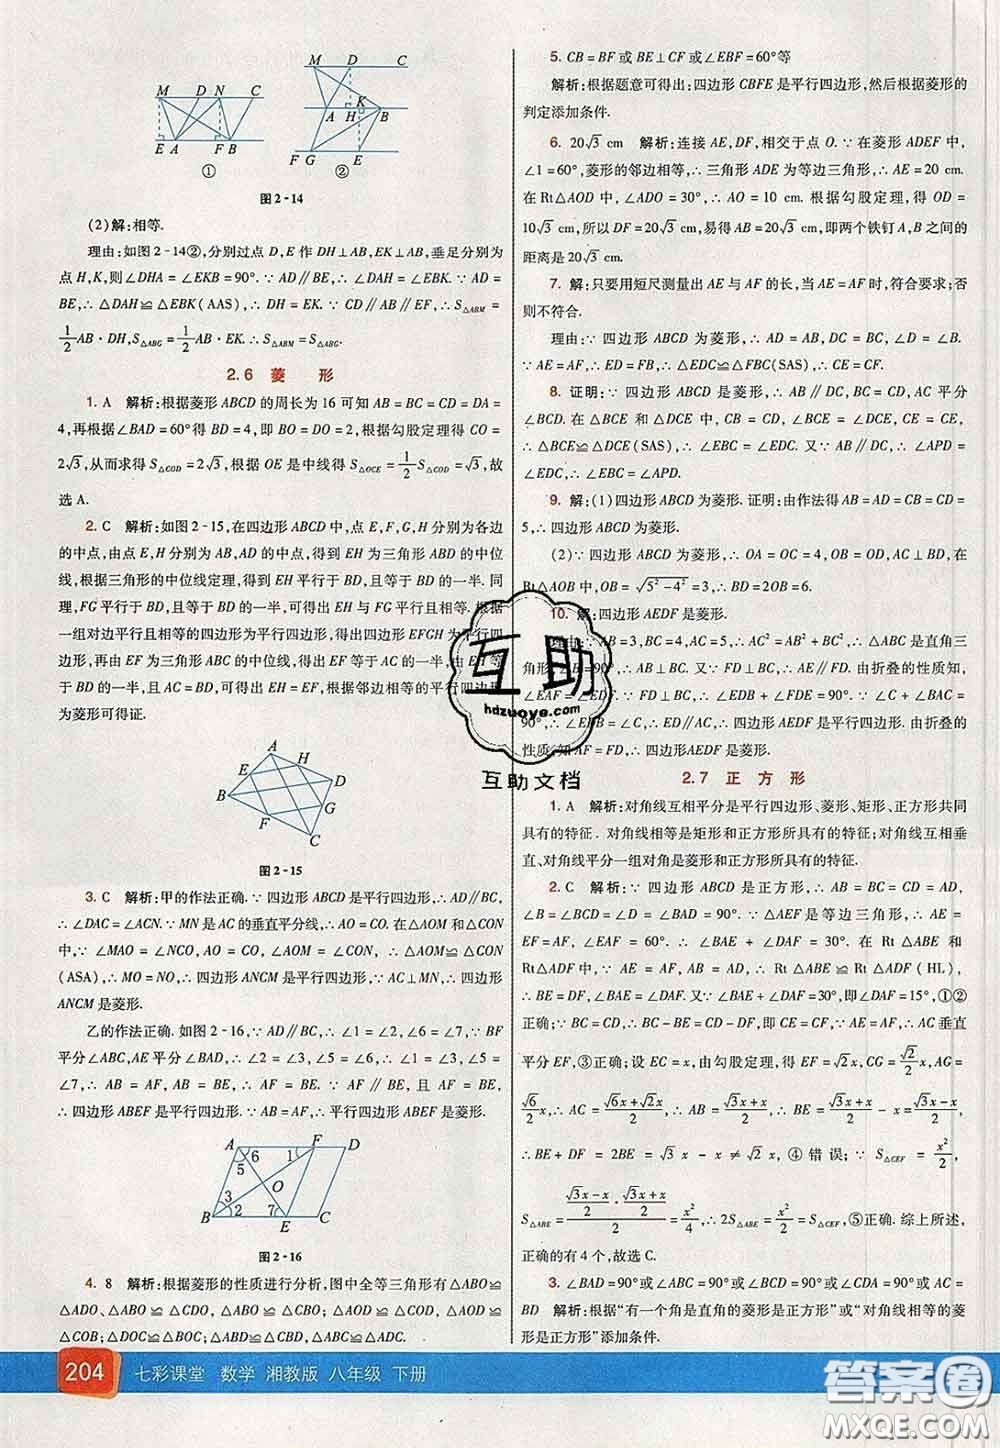 M D N C
E A F B
①
M D C
A H K B
F G E
②
图2-14
(2)解:相等.
理由:如图2-14②,分别过点D,E作DH⊥AB,EK⊥AB,垂足分别为
点H,K,则∠DHA=∠EKB=90°.∵AD∥BE,∴∠DAH=∠EBK.∵AD=
BE,∴△DAH≌△EBK(AAS),∴DH=EK.∵CD∥AB∥EF,∴S△ABM=
1/2AB·DH,S△ABG=1/2AB·EK.∴S△ABM=S△ABG.
2.6 菱 形
1. A 解析:根据菱形ABCD的周长为16可知AB=BC=CD=DA=
4,再根据∠BAD=60°得BD=4,即BO=DO=2,根据勾股定理得CO=
2√3,从而求得S△COD=2√3,根据OE是中线得S△OCE=1/2S△COD=√3,故
选A.
2. C 解析:如图2-15,在四边形ABCD中,点E,F,G,H分别为各边
的中点,由点E,H分别为AB,AD的中点,得到EH为三角形ABD的中位
线,根据三角形的中位线定理,得到EH平行于BD,且等于BD的一半.同
理,FG平行于BD,且等于BD的一半,可得到EH与FG平行且相等.根据
一组对边平行且相等的四边形为平行四边形,得出EFGH为平行四边
形,再由EF为三角形ABC的中位线,得出EF等于AC的一半,由EH等于
BD的一半,且AC=BD,可得出EH=EF,根据邻边相等的平行四边形
为菱形可得证.
A H D
E
B G
F C
图2-15
3. C 解析:甲的作法正确.∵四边形ABCD是平行四边形,∴AD∥BC,
∴∠DAC=∠ACN.∵MN是AC的垂直平分线,∴AO=CO.在△AOM和△CON
中,∵∠MAO=∠NCO,AO=CO,∠AOM=∠CON,∴△AOM≌△CON
(ASA),∴MO=NO,∴四边形ANCM是平行四边形.∵AC⊥MN,∴四边形
ANCM是菱形.
乙的作法正确.如图2-16,∵AD∥BC,∴∠1=∠2,∠6=∠7,∵BF
平分∠ABC,AE平分∠BAD,∴∠2=∠3,∠5=∠6,∴∠1=∠3,∠5=
∠7,∴AB=AF,AB=BE,∴AF=BE.∵AF∥BE,且AF=BE,
∴四边形ABEF是平行四边形.∵AB=AF,∴平行四边形ABEF是菱形.
A 6 1 F D
5
O
3
B 2 7 E C
图2-16
4. 8 解析:根据菱形的性质进行分析,图中全等三角形有△ABO≌
△ADO、△ABO≌△CDO、△ABO≌△CBO;△AOD≌△COD、△AOD≌
△COB;△DOC≌△BOC;△ABD≌△CBD;△ABC≌△ADC.
5. CB=BF或BE⊥CF或∠EBF=60°等
解析:根据题意可得出:四边形CBFE是平行四边形,然后根据菱形的
判定添加条件.
6. 20√3 cm 解析:连接AE,DF,相交于点O.∵在菱形ADEF中,
∠1=60°,菱形的邻边相等,∴三角形ADE为等边三角形,∴AE=20 cm.
在Rt△AOD中,∠ADO=30°,∴AO=10 cm.根据勾股定理得OD=
10√3 cm,所以DF=20√3 cm.易得AB=20√3 cm,即两个铁钉A,B之间的
距离是20√3 cm.
7. 解:只要用短尺测量出AE与AF的长,当AE=AF时,符合要求;否
则不符合.
理由:∵四边形ABCD为菱形,∴AD=AB,DC=BC,∠D=∠B.
∵AE=AF,∴ED=FB,∴△EDC≌△FBC(SAS),∴CE=CF.
8. 证明:∵四边形ABCD是菱形,∴AB∥CD,BC=CD,AC平分
∠BCD.在△BCE和△DCE中,CB=CD,∠BCE=∠DCE,CE=CE,
∴△BCE≌△DCE(SAS),∴∠EBC=∠EDC.又∵AB∥DC,∴∠APD
=∠EDC,∴∠EBC=∠APD.
9. 解:(1)四边形ABCD为菱形.证明:由作法得AB=AD=CB=CD=
5,∴四边形ABCD为菱形.
(2)∵四边形ABCD为菱形,∴OA=OC=4,OB=OD,AC⊥BD,在
Rt△AOB中,OB=√5²-4²=3,∴BD=2OB=6.
10. 解:四边形AEDF是菱形.
理由:∵AB=3,BC=4,AC=5,∴AC²=AB²+BC²,∴△ABC是直角三
角形,∠B=90°,∴AB⊥BC.又∵FD⊥BC,∴AE∥FD.由折叠的性质知,
∠EAF=∠EDF.∵FD⊥BC,∴∠EDB+∠FDE=90°.∵∠C+∠BAC=
90°,∴∠EDB=∠C,∴ED∥AC,∴四边形AEDF是平行四边形.由折叠的
性质知AF=DF,∴四边形AEDF是菱形.
2.7 正 方 形
1. A 解析:对角线互相平分是平行四边形、菱形、矩形、正方形共同
具有的特征.对角线相等是矩形和正方形所具有的特征;对角线互相垂
直、对角线平分一组对角是菱形和正方形所具有的特征.
2. C 解析:∵四边形ABCD是正方形,∴AB=BC=CD=AD,
∠B=∠BCD=∠D=∠BAD=90°.∵△AEF是等边三角形,∴AE=
EF=AF,∠EAF=60°.∴∠BAE+∠DAF=30°.在Rt△ABE和
Rt△ADF中,∵AE=AF,AB=AD,∴Rt△ABE≌Rt△ADF(HL),
∴BE=DF,∠BAE=∠DAF.∵∠BAE+∠DAF=30°,即∠DAF=15°,①②
正确;∵BC=CD,∴BC-BE=CD-DF,即CE=CF,∵AE=AF,∴AC垂直
平分EF,③正确;设EC=x,由勾股定理,得EF=√2x,CG=√2/2x,AG=
√6/2x,∴AC=√6x+√2x/2,∴AB=√3x+x/2,∴BE=√3x+x/2-x=√3x-x/2,
∴BE+DF=2BE=√3x-x≠√2x,④错误;∵S△CEF=x²/2,
S△ABE=√3x-x/2·√3x+x/2/2=x²/4,∴2S△ABE=x²/2=S△CEF,⑤正确.综上所述,
正确的有4个,故选C.
3. ∠BAD=90°或∠ABC=90°或∠BCD=90°或∠ADC=90°或AC=
BD 解析:根据“有一个角是直角的菱形是正方形”或“对角线相等的菱
形是正方形”添加条件.
互助
hdzuoye.com
互助文档
204 七彩课堂 数学 湘教版 八年级 下册
答案圈
MXQE.COM